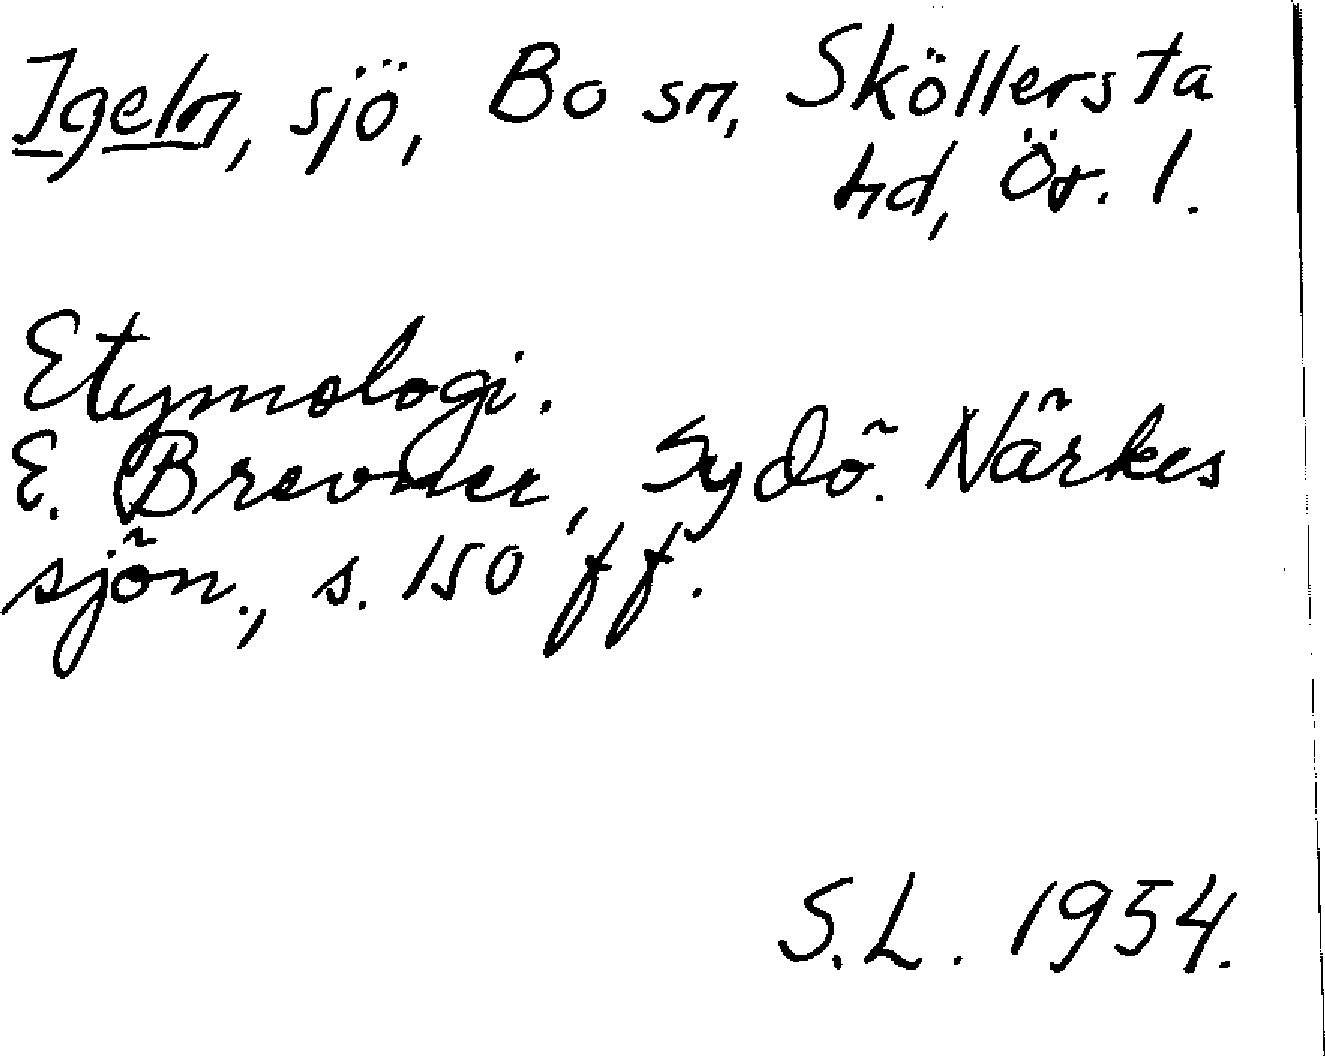 Igeln, sjö, Bo sn, Sköllersta
hd, Ör. l.
Etymologi.
E. Brevner, Sydö. Närkes
sjön., s. 150 ff.
S.L. 1954.